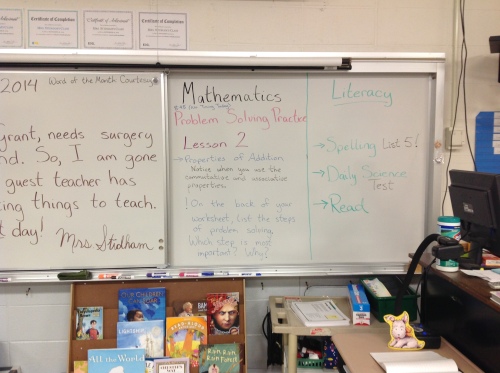 Certificate of Achievement
Certificate of Completion
2014 Word of the Month Courtesy
grant, needs surgery
nd. So, I am gone
guest teacher has
ing things to teach.
t day!
Mrs. Stidham
Mathematics
Problem Solving Practice
Lesson 2
→Properties of Addition
Notice when you use the
commutative and associative
properties.
! On the back of your
worksheet, list the steps
of problem solving.
Which step is most
important? Why?
Literacy
→Spelling List 5!
→Daily Science
Test
→Read
All the World
Run,
Run, Forest